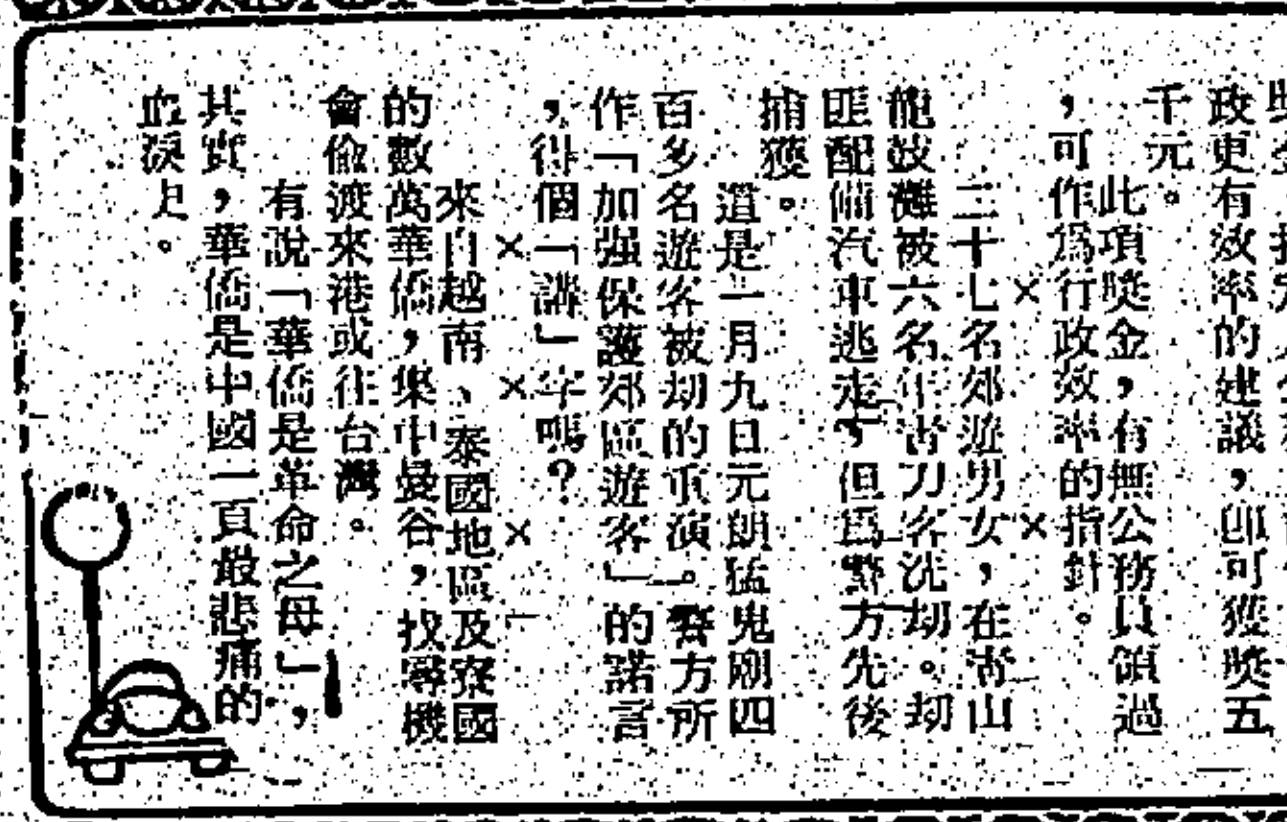 政更有效率的建議，即可獲獎五
千元。
此項獎金，有無公務員領過
，可作爲行政效率的指針。
×　×　×
二十七名郊遊男女，在青山
龍鼓灘被六名年靑刀客洗刧。刧
匪配備汽車逃走，但爲警方先後
捕獲。
這是一月九日元朗猛鬼剛四
百多名遊客被刧的重演。警方所
作「加强保護郊區遊客」的諾言
，得個「講」字嗎？
×　×　×
來自越南、泰國地區及寮國
的數萬華僑，集中曼谷，找尋機
會偷渡來港或往台灣。
有說「華僑是革命之母」，
其實，華僑是中國一頁最悲痛的
血淚史。